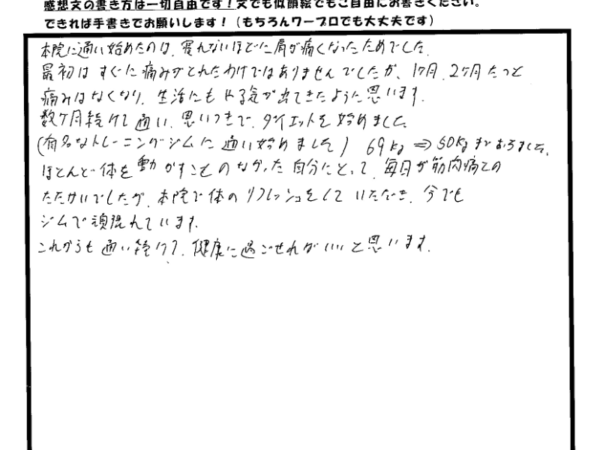 感想文の書き方は一切自由です！文でも似顔絵でもご自由にお書きください。
できれば手書きでお願いします！（もちろんワープロでも大丈夫です）
本院に通い始めたのは、寝れないほどに肩が痛くなったためでした。
最初はすぐに痛みがとれたわけではありませんでしたが、1ヶ月、2ヶ月たつと
痛みはなくなり、生活にもやる気が出てきたように思います。
数ヶ月続けて通い、思いつきで、ダイエットを始めました
(有名なトレーニングジムに通い始めました) 69kg ⇒ 50kgまでおちました。
ほとんど体を動かすことのなかった自分にとって、毎日が筋肉痛との
たたかいでしたが、本院で体のリフレッシュをしていただき、今でも
ジムで頑張れています。
これからも通い続けて、健康に過ごせればいいと思います。